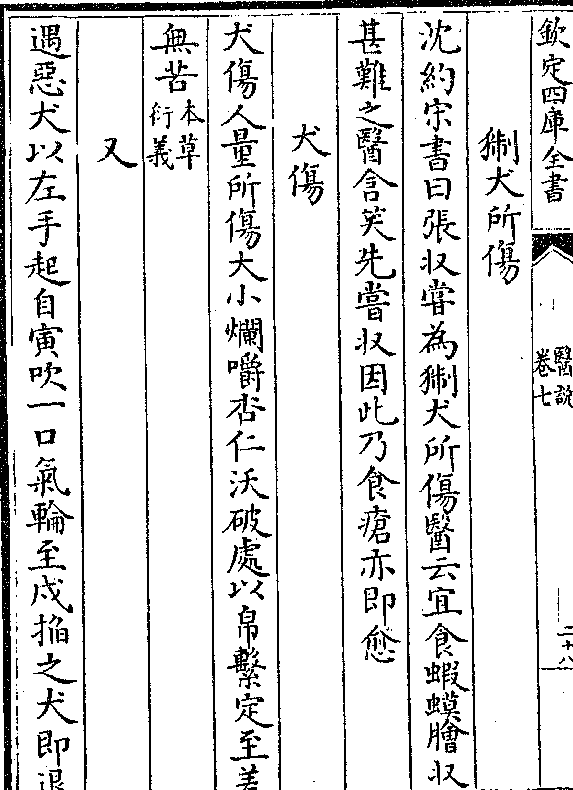 欽定四庫全書
醫說
卷七
二十八
猘犬所傷
沈約宋書曰張収嘗為猘犬所傷醫云宜食蝦蟆膾収
甚難之醫含笑先嘗収因此乃食瘡亦即愈
犬傷
犬傷人量所傷大小爛嚼杏仁沃破處以帛繫定至差
無苦本草
衍義
又
遇惡犬以左手起自寅吹一口氣輪至戌掐之犬即退